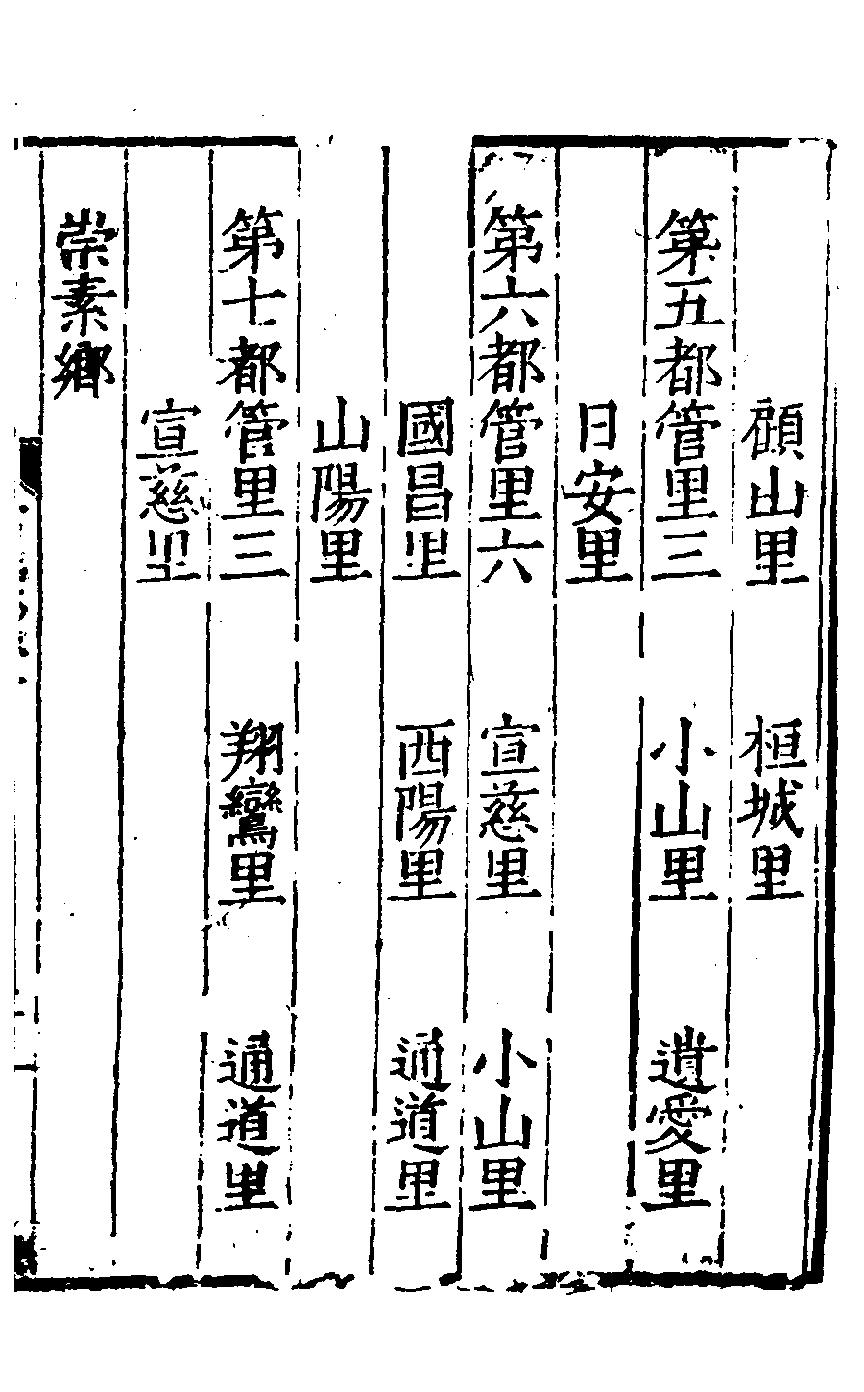 顧山里　桓城里
第五都管里三　小山里　遺愛里
日安里
第六都管里六　宣慈里　小山里
國昌里　西陽里　通道里
山陽里
第七都管里三　翔鸞里　通道里
宣慈里
崇素鄉